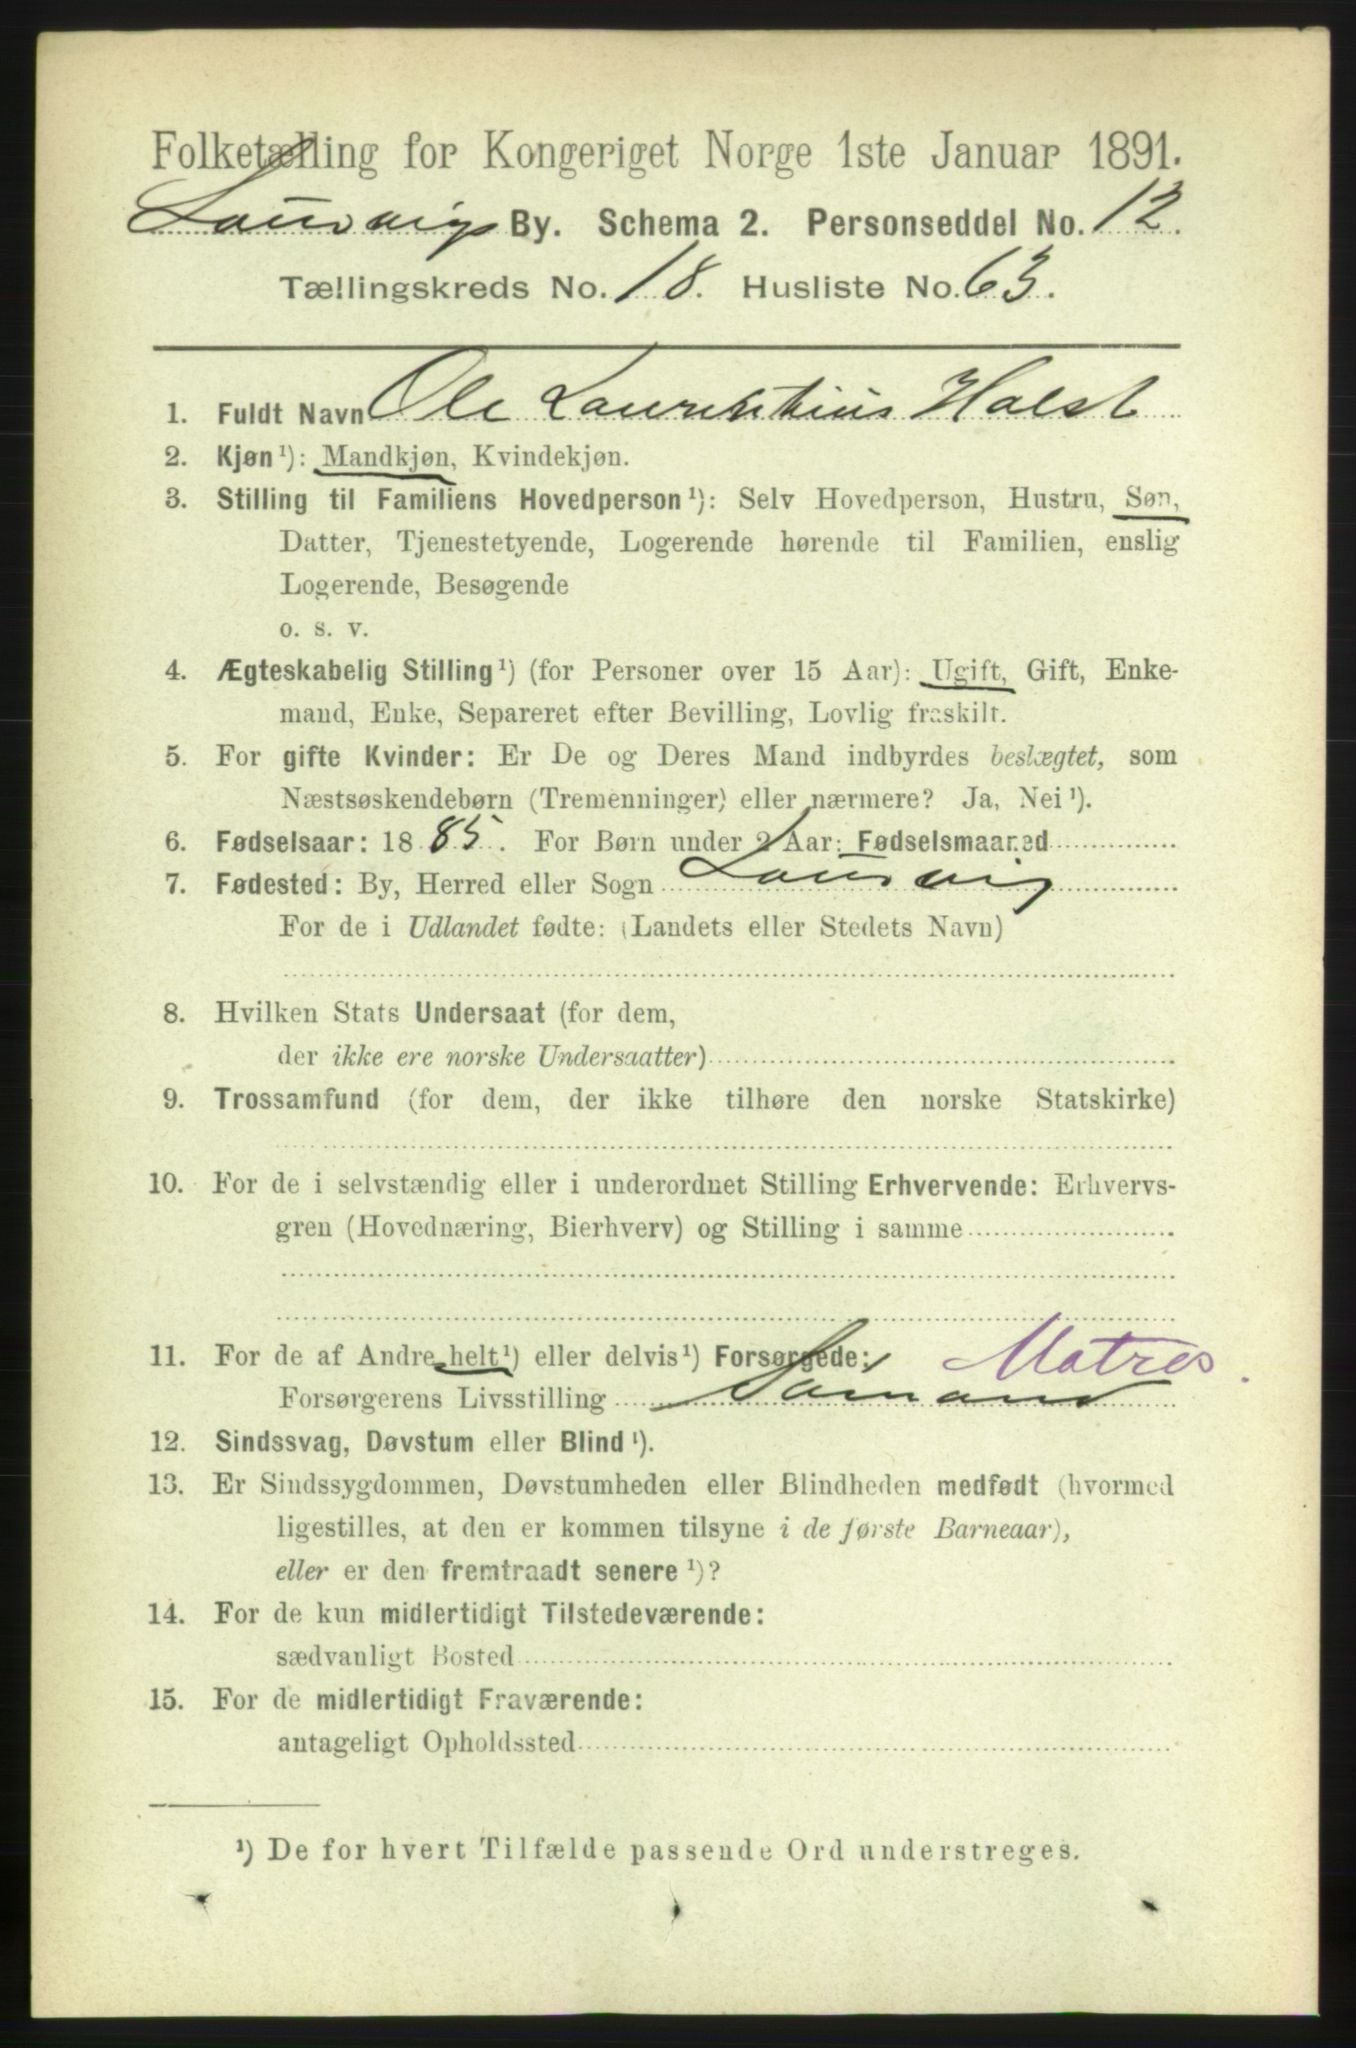 Folketælling for Kongeriget Norge 1ste Januar 1891.
Laurvigs By. Schema 2. Personseddel No. 12.
Tællingskreds No. 18. Husliste No. 63.
1. Fuldt Navn Ole Laurentius Holst
2. Kjøn¹): Mandkjøn, Kvindekjøn.
3. Stilling til Familiens Hovedperson¹): Selv Hovedperson, Hustru, Søn,
Datter, Tjenestetyende, Logerende hørende til Familien, enslig
Logerende, Besøgende
o. s. v.
4. Ægteskabelig Stilling¹) (for Personer over 15 Aar): Ugift, Gift, Enke-
mand, Enke, Separeret efter Bevilling, Lovlig fraskilt.
5. For gifte Kvinder: Er De og Deres Mand indbyrdes beslægtet, som
Næstsøskendebørn (Tremenninger) eller nærmere? Ja, Nei¹).
6. Fødselsaar: 1885. For Børn under 2 Aar: Fødselsmaaned
7. Fødested: By, Herred eller Sogn Laurvig
For de i Udlandet fødte: (Landets eller Stedets Navn)
8. Hvilken Stats Undersaat (for dem,
der ikke ere norske Undersaatter)
9. Trossamfund (for dem, der ikke tilhøre den norske Statskirke)
10. For de i selvstændig eller i underordnet Stilling Erhvervende: Erhvervs-
gren (Hovednæring, Bierhverv) og Stilling i samme
11. For de af Andre helt¹) eller delvis¹) Forsørgede: Matros.
Forsørgerens Livsstilling Sømand
12. Sindssvag, Døvstum eller Blind¹).
13. Er Sindssygdommen, Døvstumheden eller Blindheden medfødt (hvormed
ligestilles, at den er kommen tilsyne i de første Barneaar),
eller er den fremtraadt senere¹)?
14. For de kun midlertidigt Tilstedeværende:
sædvanligt Bosted
15. For de midlertidigt Fraværende:
antageligt Opholdssted
¹) De for hvert Tilfælde passende Ord understreges.